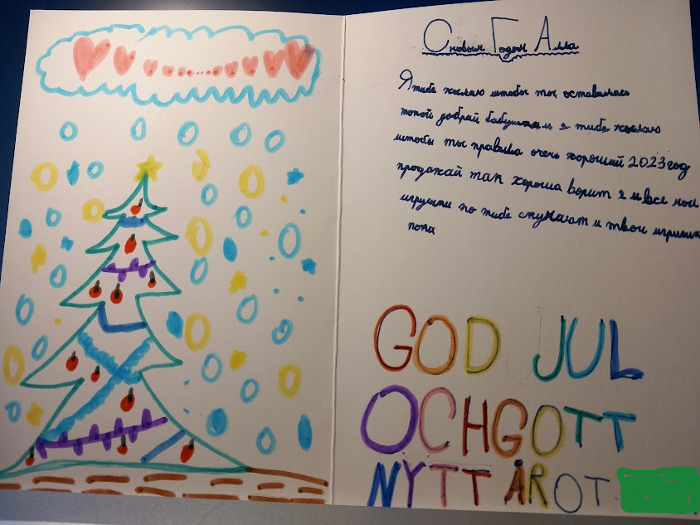 Сновым Годом Алла
Я тибе жылаю штобы ты оставалась
токой добрай я тибе жылаю
штобы ты правила очень хороший 2023 год
продажай так хораша ворит я и все мои
игрушки по тибе скучают и твои игрушки
пока
GOD JUL
OCHGOTT
NYTT ÅROT